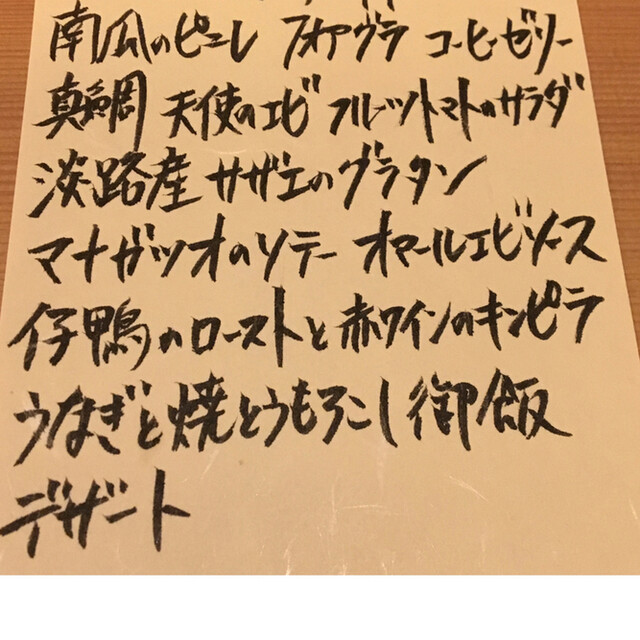 南瓜のピューレ フォアグラ コーヒーゼリー
真鯛 天使のエビ フルーツトマトのサラダ
淡路産 サザエのグラタン
マナガツオのソテー オマールエビソース
仔鴨のローストと赤ワインのキンピラ
うなぎと焼とうもろこし御飯
デザート